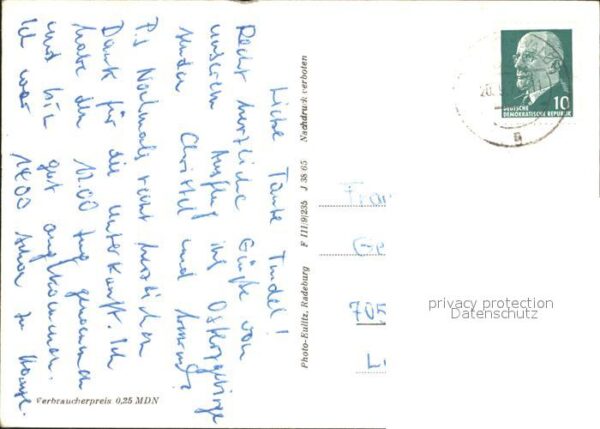 Liebe Tante Trudel!
Recht herzliche Grüße von
unserem Ausflug ins Osterzgebirge
senden Christel und
P.S Nochmals recht herzlichen
Dank für die Unterkunft. Ich
habe den 12.00 Zug genommen
und bin gut angekommen.
Ich war 14.00 schon zu Hause.
Verbraucherpreis 0,25 MDN
Photo-Eulitz, Radeburg F 111/9/235 J 38 65 Nachdruck verboten
20.
DEUTSCHE 10
DEMOKRATISCHE REPUBLIK
a
Fra
Ge
705
L
privacy protection
Datenschutz